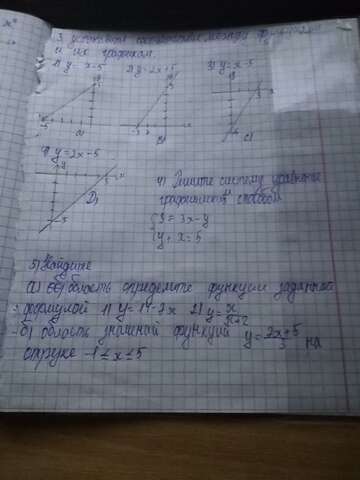 3. установи соответствие между
и их графиком.
1) y = x-5 2) y = 2x+5 3) y = x-5
A) B) C)
4) y = 2x-5
y x
D)
-5
4) Решите систему уравнений
графическим способом
{ 3 = 3x-y
{ y + x = 5
5) Найдите
а) область определите функции заданной
формулой 1) y = 17-2x 2) y = x/x+2
б) область значений функций y = 2x+5/3 на
отрузке -1 ≤ x ≤ 5